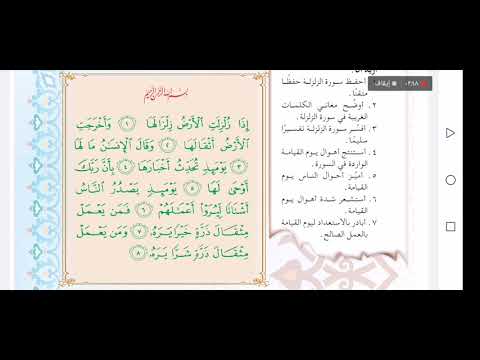 بسم الله الرحمن الرحيم
إِذَا زُلْزِلَتِ ٱلْأَرْضُ زِلْزَالَهَا ١ وَأَخْرَجَتِ
ٱلْأَرْضُ أَثْقَالَهَا ٢ وَقَالَ ٱلْإِنسَٰنُ مَا لَهَا
٣ يَوْمَئِذٍ تُحَدِّثُ أَخْبَارَهَا ٤ بِأَنَّ رَبَّكَ
أَوْحَىٰ لَهَا ٥ يَوْمَئِذٍ يَصْدُرُ ٱلنَّاسُ
أَشْتَاتًا لِّيُرَوْا۟ أَعْمَٰلَهُمْ ٦ فَمَن يَعْمَلْ
مِثْقَالَ ذَرَّةٍ خَيْرًا يَرَهُۥ ٧ وَمَن يَعْمَلْ
مِثْقَالَ ذَرَّةٍ شَرًّا يَرَهُۥ ٨
إيقاف
١. أحفظ سورة الزلزلة حفظًا
متقنًا.
٢. أوضّح معاني الكلمات
الغريبة في سورة الزلزلة.
٣. أفسّر سورة الزلزلة تفسيرًا
سليمًا.
٤. أستنتج أهوال يوم القيامة
الواردة في السورة.
٥. أميّز أحوال الناس يوم
القيامة.
٦. أستشعر شدة أهوال يوم
القيامة.
٧. أبادر بالاستعداد ليوم القيامة
بالعمل الصالح.